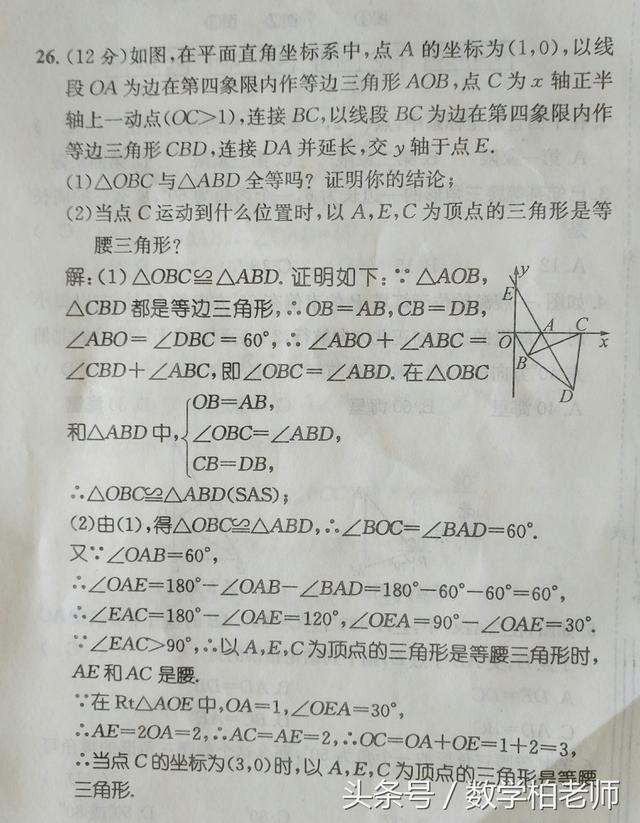 26. (12分)如图,在平面直角坐标系中,点A的坐标为(1,0),以线
段OA为边在第四象限内作等边三角形AOB,点C为x轴正半
轴上一动点(OC>1),连接BC,以线段BC为边在第四象限内作
等边三角形CBD,连接DA并延长,交y轴于点E.
(1)△OBC与△ABD全等吗?证明你的结论;
(2)当点C运动到什么位置时,以A,E,C为顶点的三角形是等
腰三角形?
解:(1)△OBC≌△ABD.证明如下:∵△AOB,
△CBD都是等边三角形,∴OB=AB,CB=DB,
∠ABO=∠DBC=60°,∴∠ABO+∠ABC=
∠CBD+∠ABC,即∠OBC=∠ABD.在△OBC
y
E
O
A
C
x
B
D
和△ABD中,
OB=AB,
∠OBC=∠ABD,
CB=DB,
∴△OBC≌△ABD(SAS);
(2)由(1),得△OBC≌△ABD,∴∠BOC=∠BAD=60°.
又∵∠OAB=60°,
∴∠OAE=180°-∠OAB-∠BAD=180°-60°-60°=60°,
∴∠EAC=180°-∠OAE=120°,∠OEA=90°-∠OAE=30°.
∵∠EAC>90°,∴以A,E,C为顶点的三角形是等腰三角形时,
AE和AC是腰.
∵在Rt△AOE中,OA=1,∠OEA=30°,
∴AE=2OA=2,∴AC=AE=2,∴OC=OA+OE=1+2=3,
∴当点C的坐标为(3,0)时,以A,E,C为顶点的三角形是等腰
三角形.
头条号 / 数学柏老师